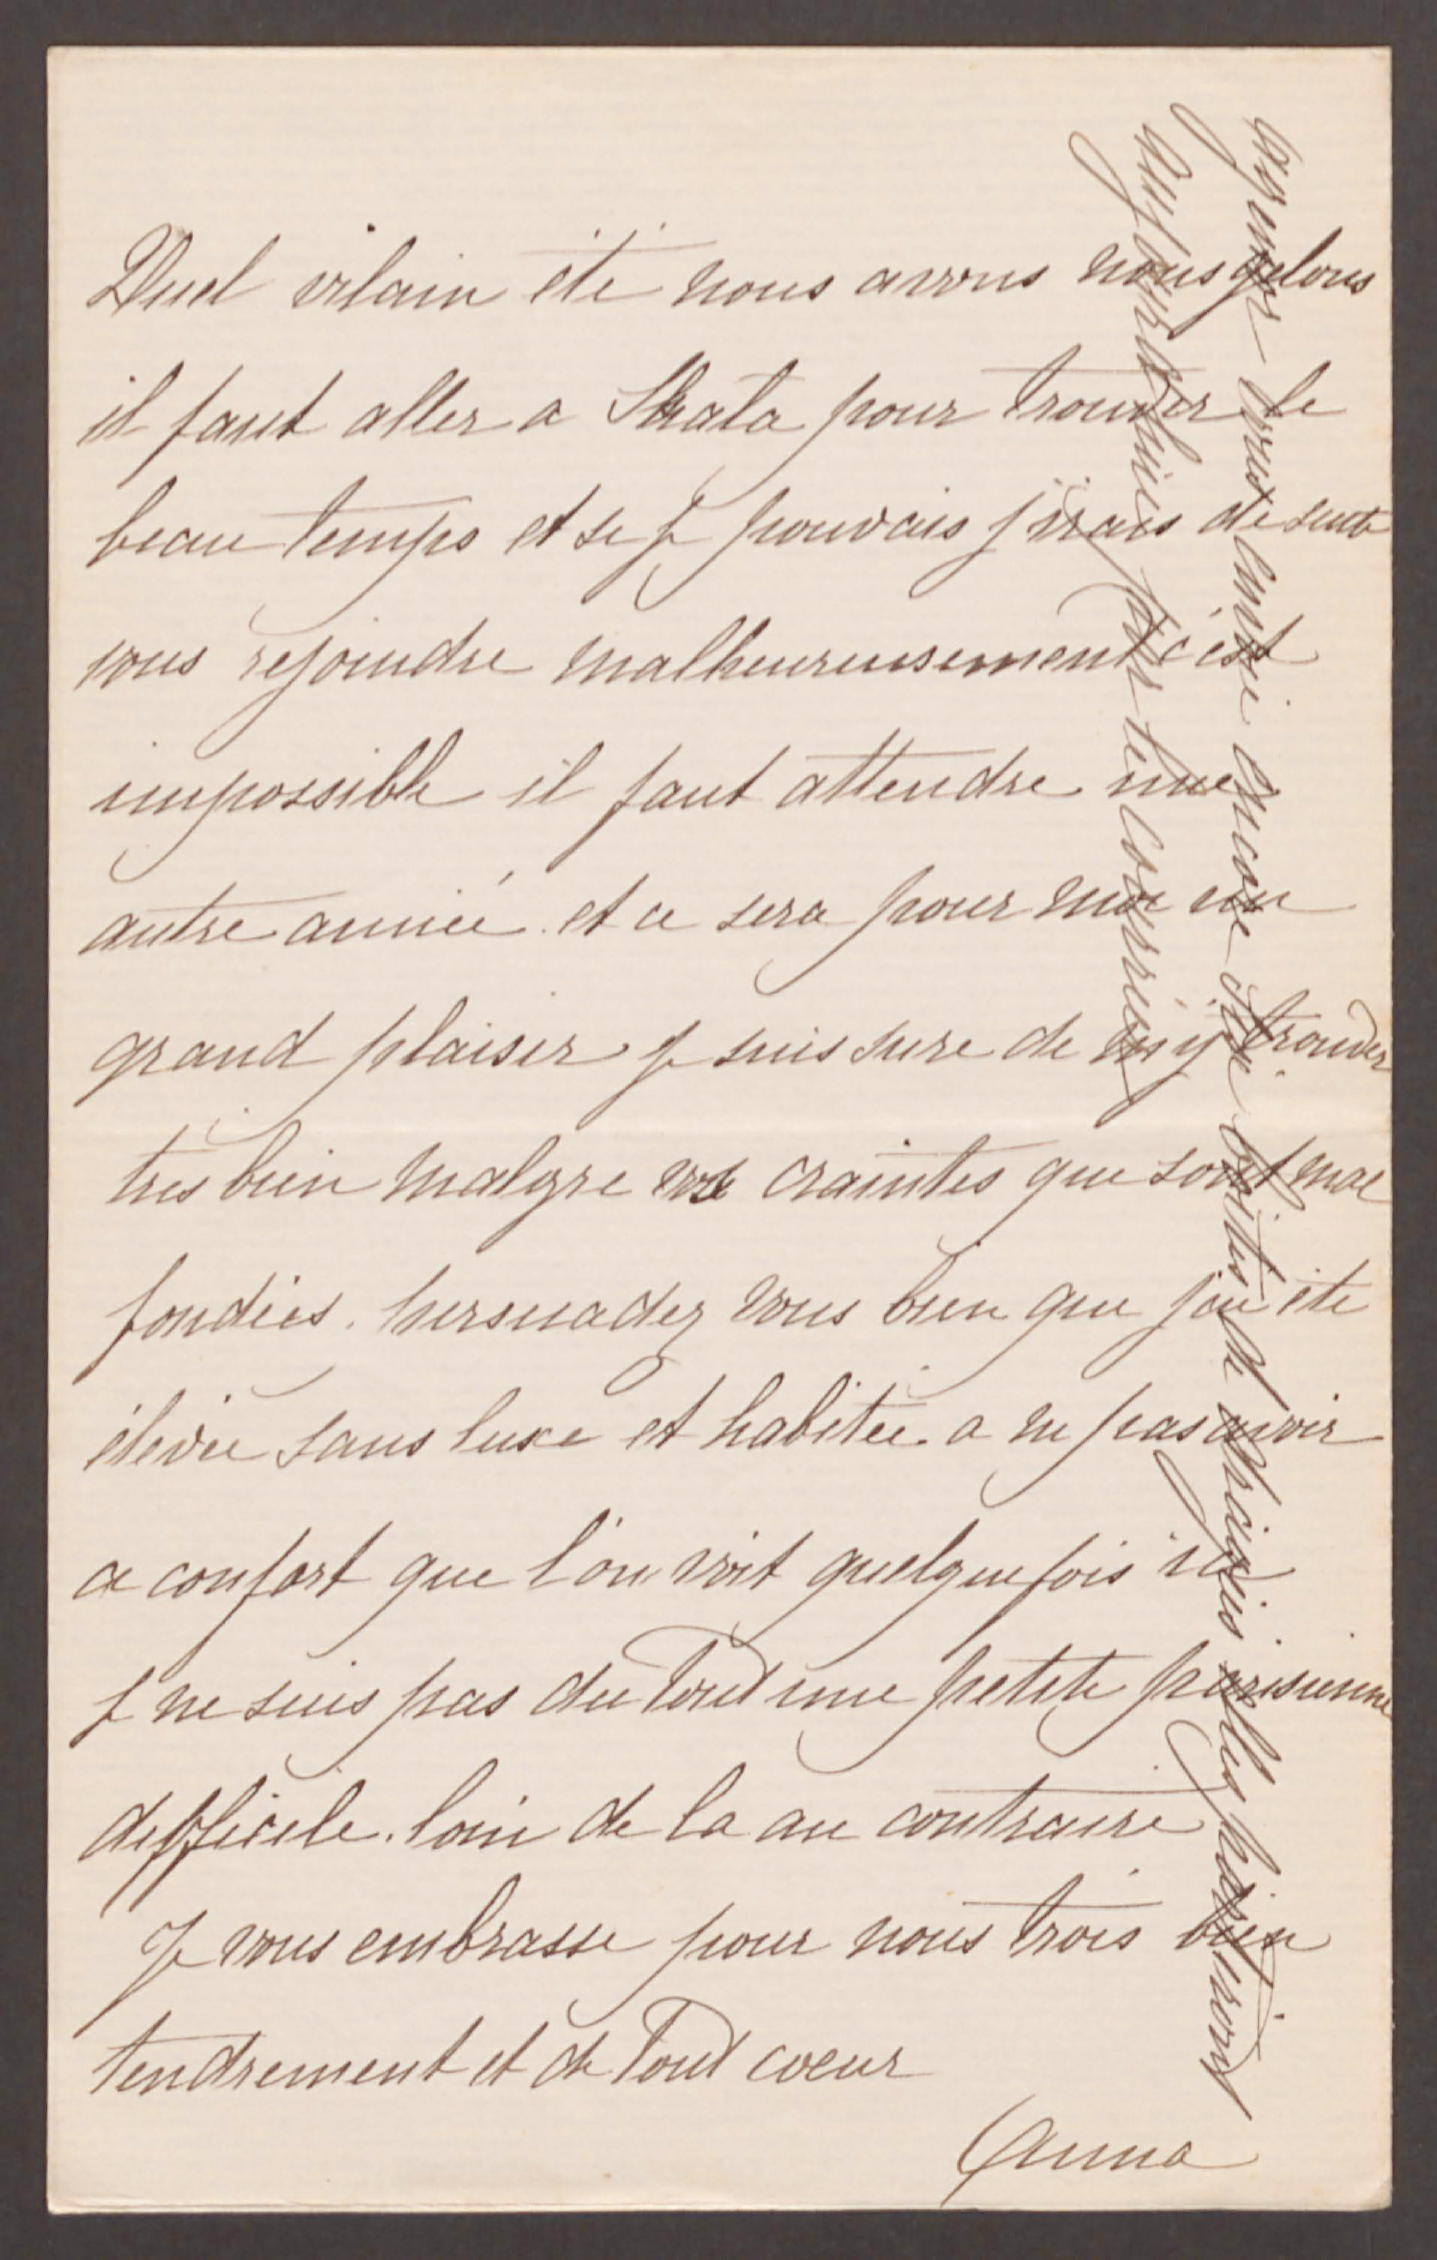 Quel vilain été nous avons nous gelons
il faut aller a Skala pour trouver le
beau temps et si je pouvais j'irais de suite
vous rejoindre malheureusement c'est
impossible il faut attendre une
autre année. et ce sera pour moi un
grand plaisir je suis sure de m'y trouver
tres bien malgre vos craintes que sont mal
fondées. persuadez vous bien que j'ai été
élevée sans luxe et habitée a ne pas avoir
ce confort que l'on voit quelquefois ici
je ne suis pas du tout une petite parisienne
difficile. loin de la au contraire
Je vous embrasse pour nous trois bien
tendrement et de tout coeur
Anna
boîtes de elles partiront
aujourd'hui par le courrier